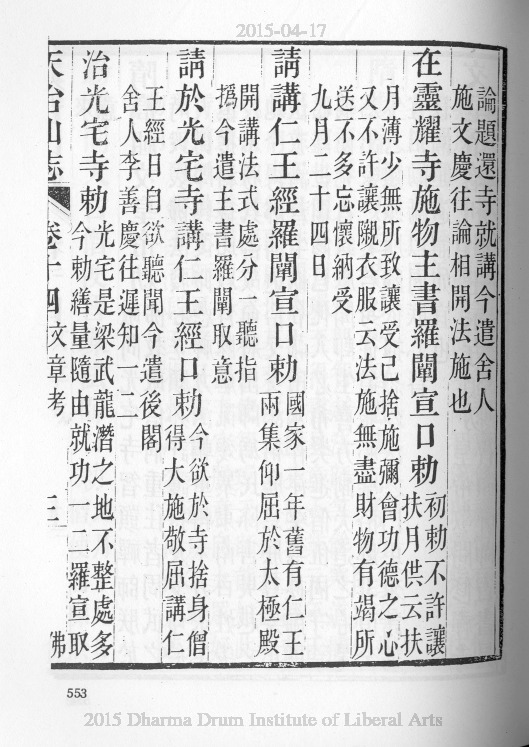 2015-04-17
論題還寺就講今遣舍人
施文慶往論相開法施也
在靈耀寺施物主書羅闡宣口勅
初勅不許讓
扶月供云扶
月薄少無所致讓受己捨施彌會功德之心
又不許讓䞋衣服云法施無盡財物有竭所
送不多忘懷納受
九月二十四日
請講仁王經羅闡宣口勅
國家一年舊有仁王
兩集仰屈於太極殿
開講法式處分一聽指
撝今遣主書羅闡取意
請於光宅寺講仁王經口勅
今欲於寺捨身僧
得大施敬屈講仁
王經日自欲聽聞今遣後閣
舍人李善慶往遲知一二
治光宅寺勅
光宅是梁武龍潛之地不整處多
今勅繕量隨由就功一一羅宣取
天台山志 卷十四 文章考 三 佛
553
2015 Dharma Drum Institute of Liberal Arts